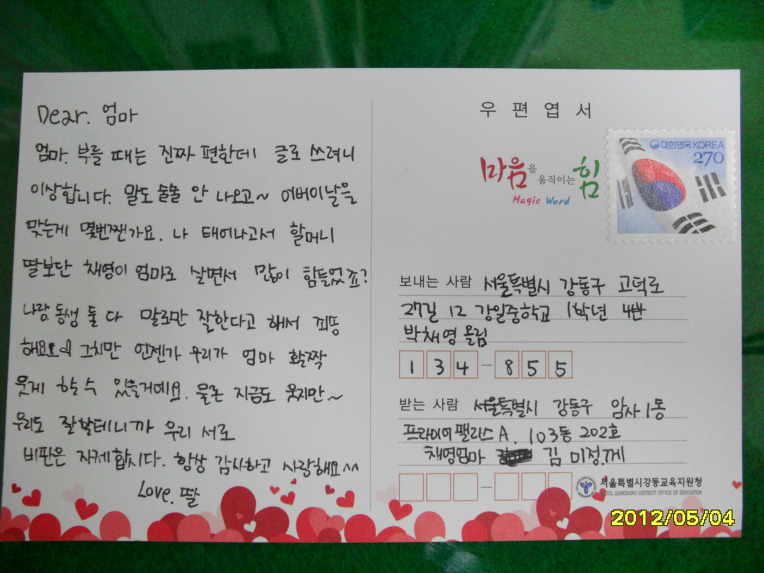 Dear. 엄마
엄마. 부를 때는 진짜 편한데 글로 쓰려니
이상합니다. 말도 술술 안 나오고~ 어버이날을
맞는게 몇번짼가요. 나 태어나고서 할머니
딸보단 채영이 엄마로 살면서 많이 힘들었죠?
나랑 동생 둘 다 말로만 잘한다고 해서 죄송
해요 그치만 언젠가 우리가 엄마 활짝
웃게 할 수 있을거예요. 물론 지금도 웃지만~
우리도 잘할테니까 우리 서로
비판은 자제합시다. 항상 감사하고 사랑해요^^
Love. 딸
우편엽서
대한민국 KOREA
270
마음을 움직이는 힘
Magic Word
보내는 사람 서울특별시 강동구 고덕로
27길 12 강일중학교 1학년 4반
박채영 올림
134-855
받는 사람 서울특별시 강동구 암사1동
프라이어팰리스A. 103동 202호
채영엄마 김미정께
서울특별시강동교육지원청
SEOUL GANGDONG DISTRICT OFFICE OF EDUCATION
2012/05/04